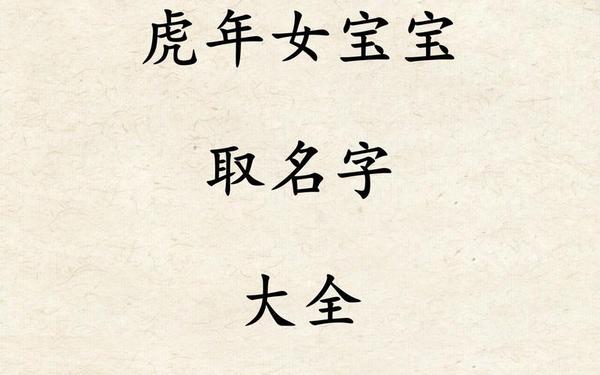 虎年女宝宝
取名字
大全